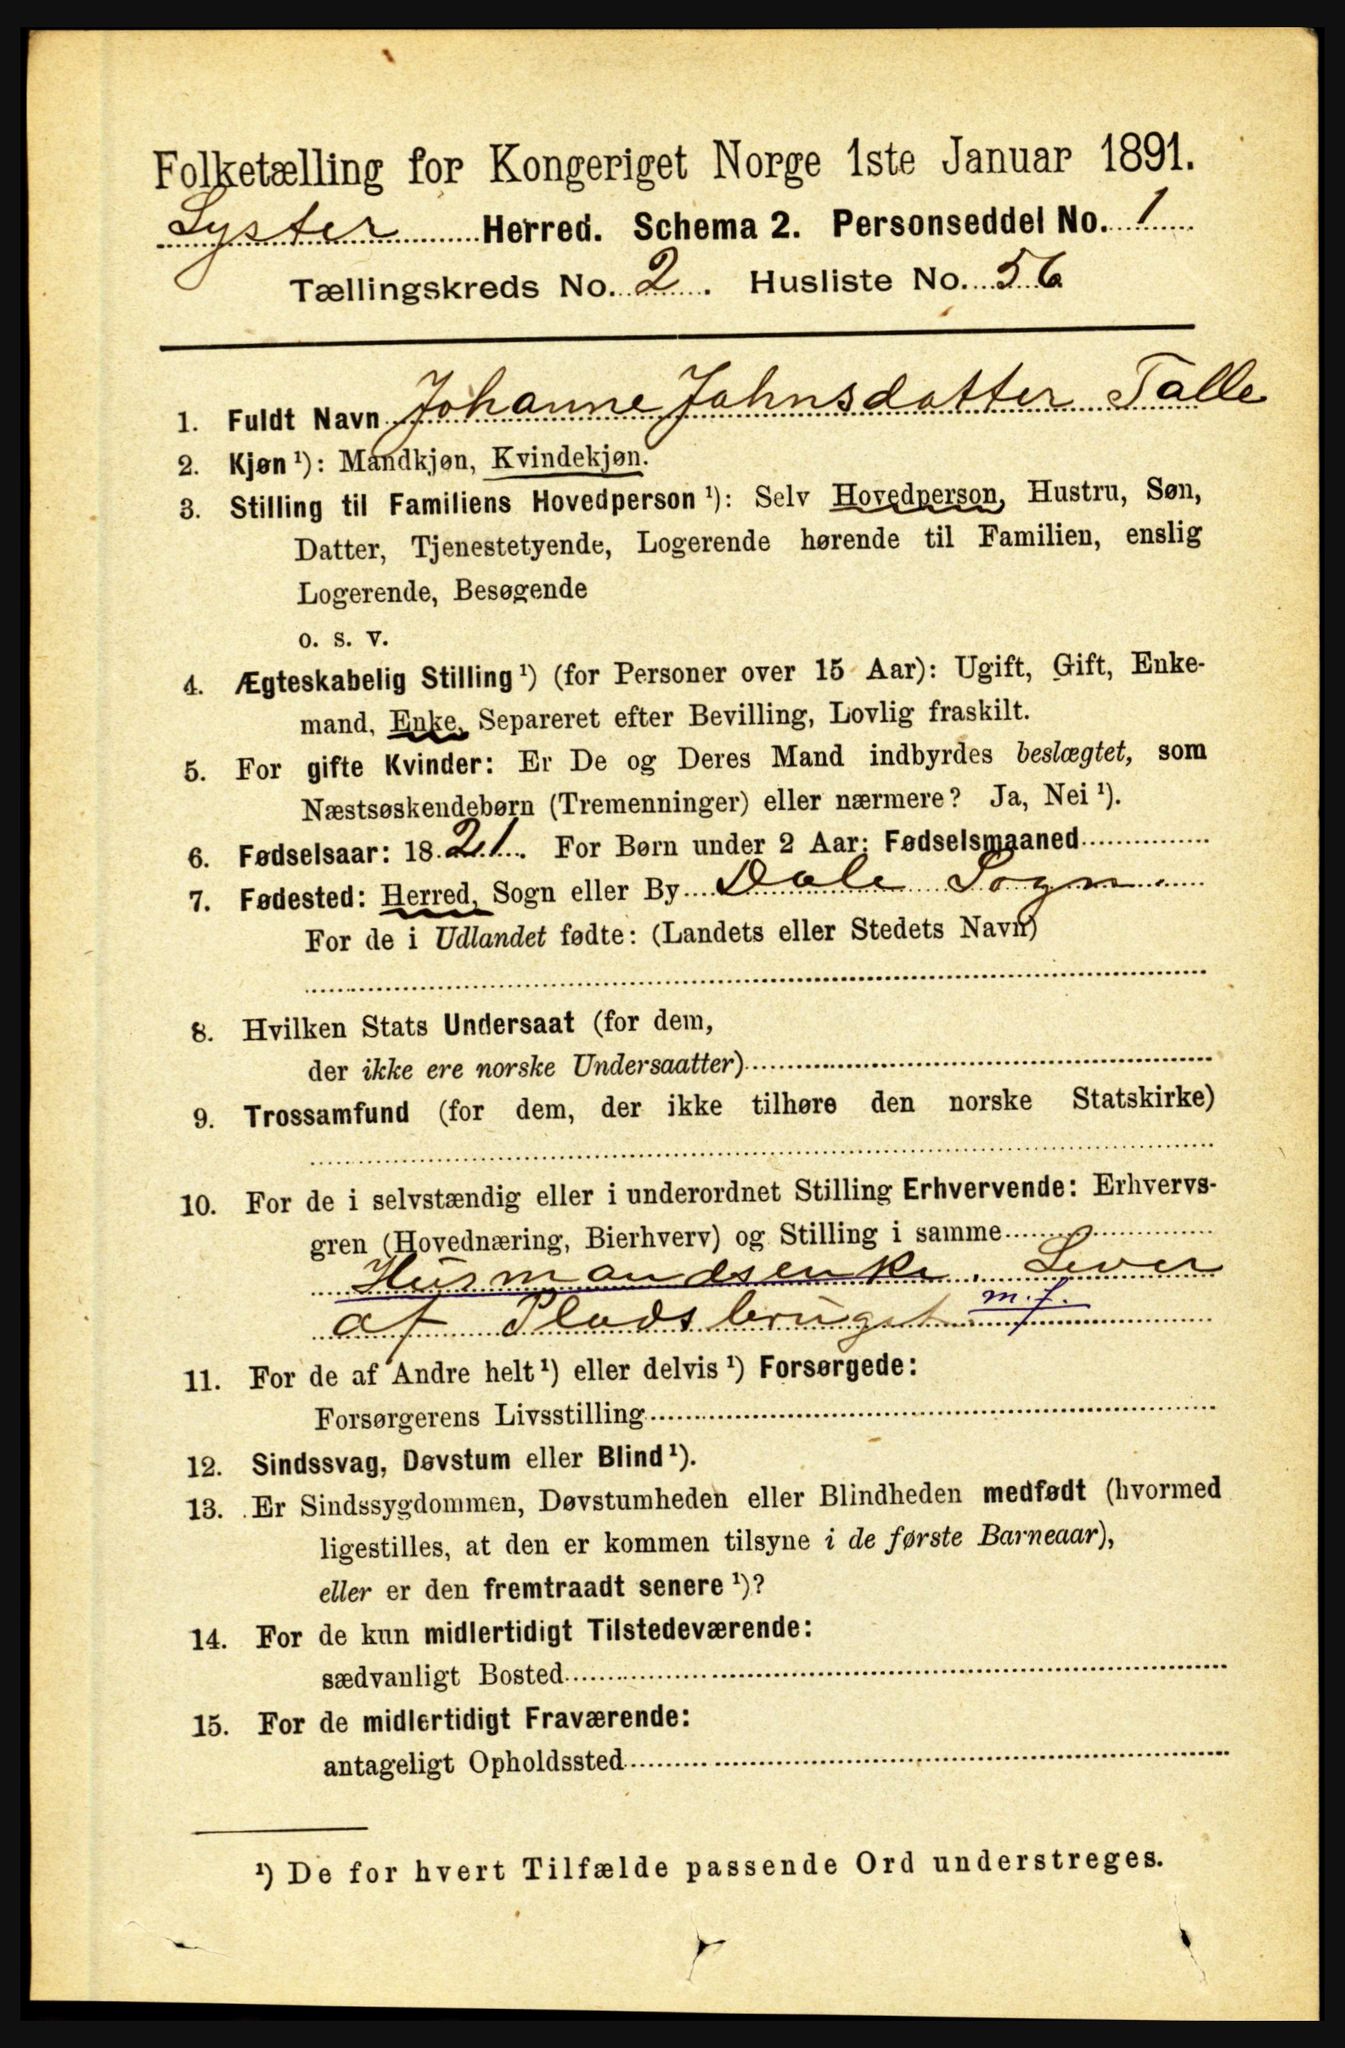 Folketælling for Kongeriget Norge 1ste Januar 1891.
Lyster Herred. Schema 2. Personseddel No. 1
Tællingskreds No. 2. Husliste No. 56
1. Fuldt Navn Johanne Johnsdatter Talle
2. Kjøn ¹): Mandkjøn, Kvindekjøn.
3. Stilling til Familiens Hovedperson ¹): Selv Hovedperson, Hustru, Søn,
Datter, Tjenestetyende, Logerende hørende til Familien, enslig
Logerende, Besøgende
o. s. v.
4. Ægteskabelig Stilling ¹) (for Personer over 15 Aar): Ugift, Gift, Enke-
mand, Enke, Separeret efter Bevilling, Lovlig fraskilt.
5. For gifte Kvinder: Er De og Deres Mand indbyrdes beslægtet, som
Næstsøskendebørn (Tremenninger) eller nærmere? Ja, Nei ¹).
6. Fødselsaar: 1821. For Børn under 2 Aar: Fødselsmaaned
7. Fødested: Herred, Sogn eller By Dale Sogn.
For de i Udlandet fødte: (Landets eller Stedets Navn)
8. Hvilken Stats Undersaat (for dem,
der ikke ere norske Undersaatter)
9. Trossamfund (for dem, der ikke tilhøre den norske Statskirke)
10. For de i selvstændig eller i underordnet Stilling Erhvervende: Erhvervs-
gren (Hovednæring, Bierhverv) og Stilling i samme
Husmandsenke. Lever
af Pladsbruget m. f.
11. For de af Andre helt ¹) eller delvis ¹) Forsørgede:
Forsørgerens Livsstilling
12. Sindssvag, Døvstum eller Blind ¹).
13. Er Sindssygdommen, Døvstumheden eller Blindheden medfødt (hvormed
ligestilles, at den er kommen tilsyne i de første Barneaar),
eller er den fremtraadt senere ¹)?
14. For de kun midlertidigt Tilstedeværende:
sædvanligt Bosted
15. For de midlertidigt Fraværende:
antageligt Opholdssted
¹) De for hvert Tilfælde passende Ord understreges.